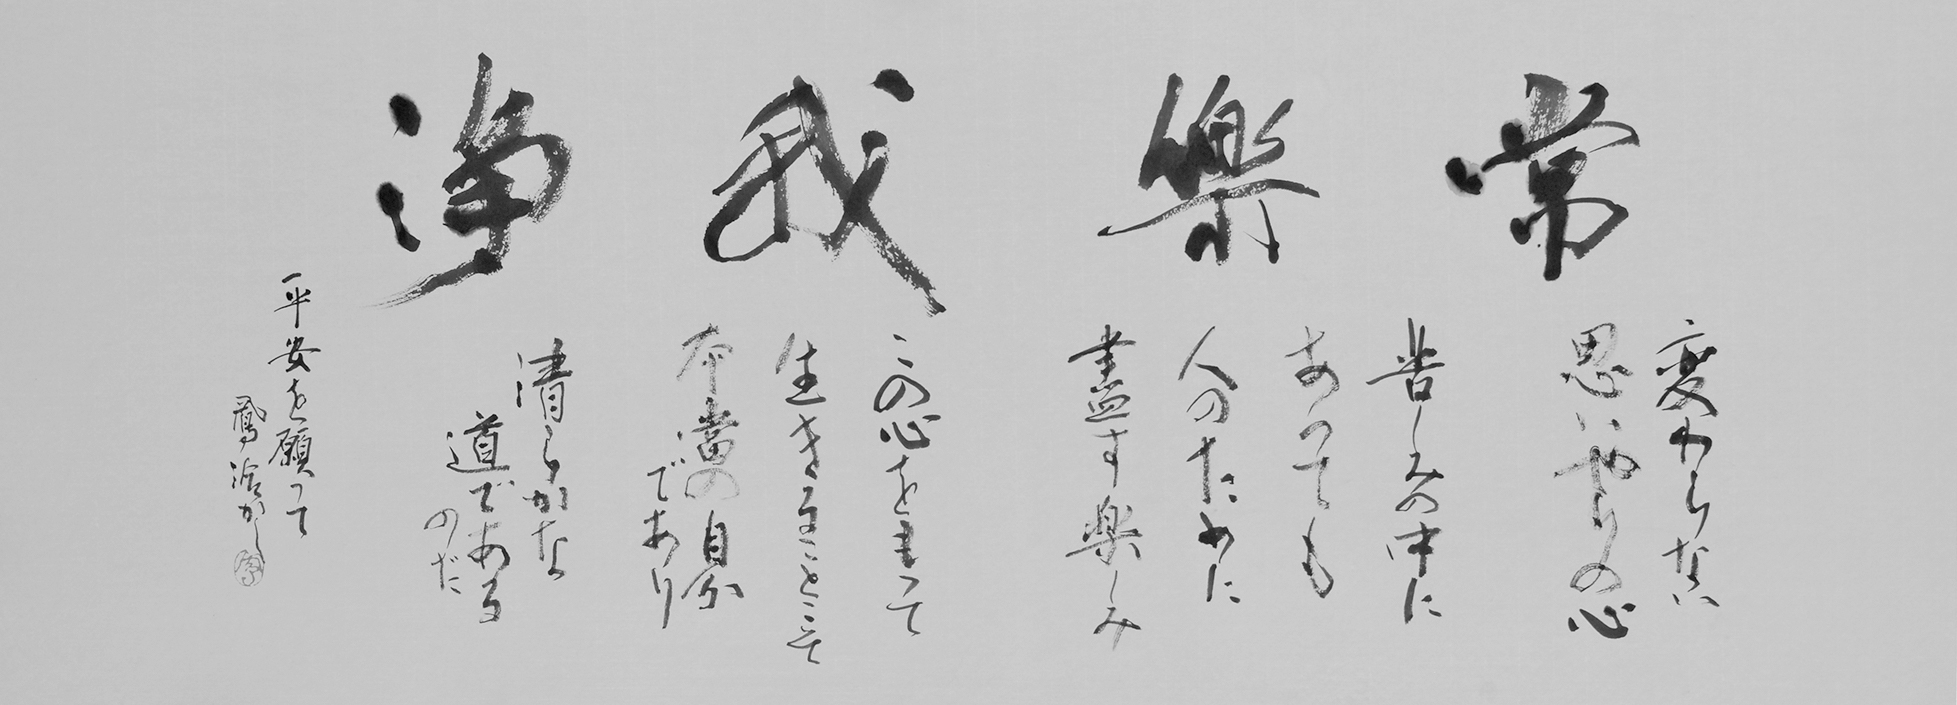 常
樂
我
浄
変わらない
思いやりの心
苦しみの中に
あっても
人のために
盡す楽しみ
この心をもって
生きることこそ
本當の自分
であり
清らかな
道である
のだ
平安を願って